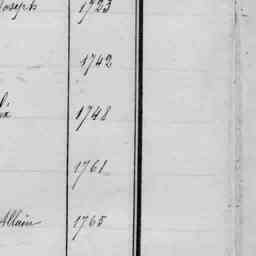 Joseph 1723
1742
1748
1761
Allain 1765